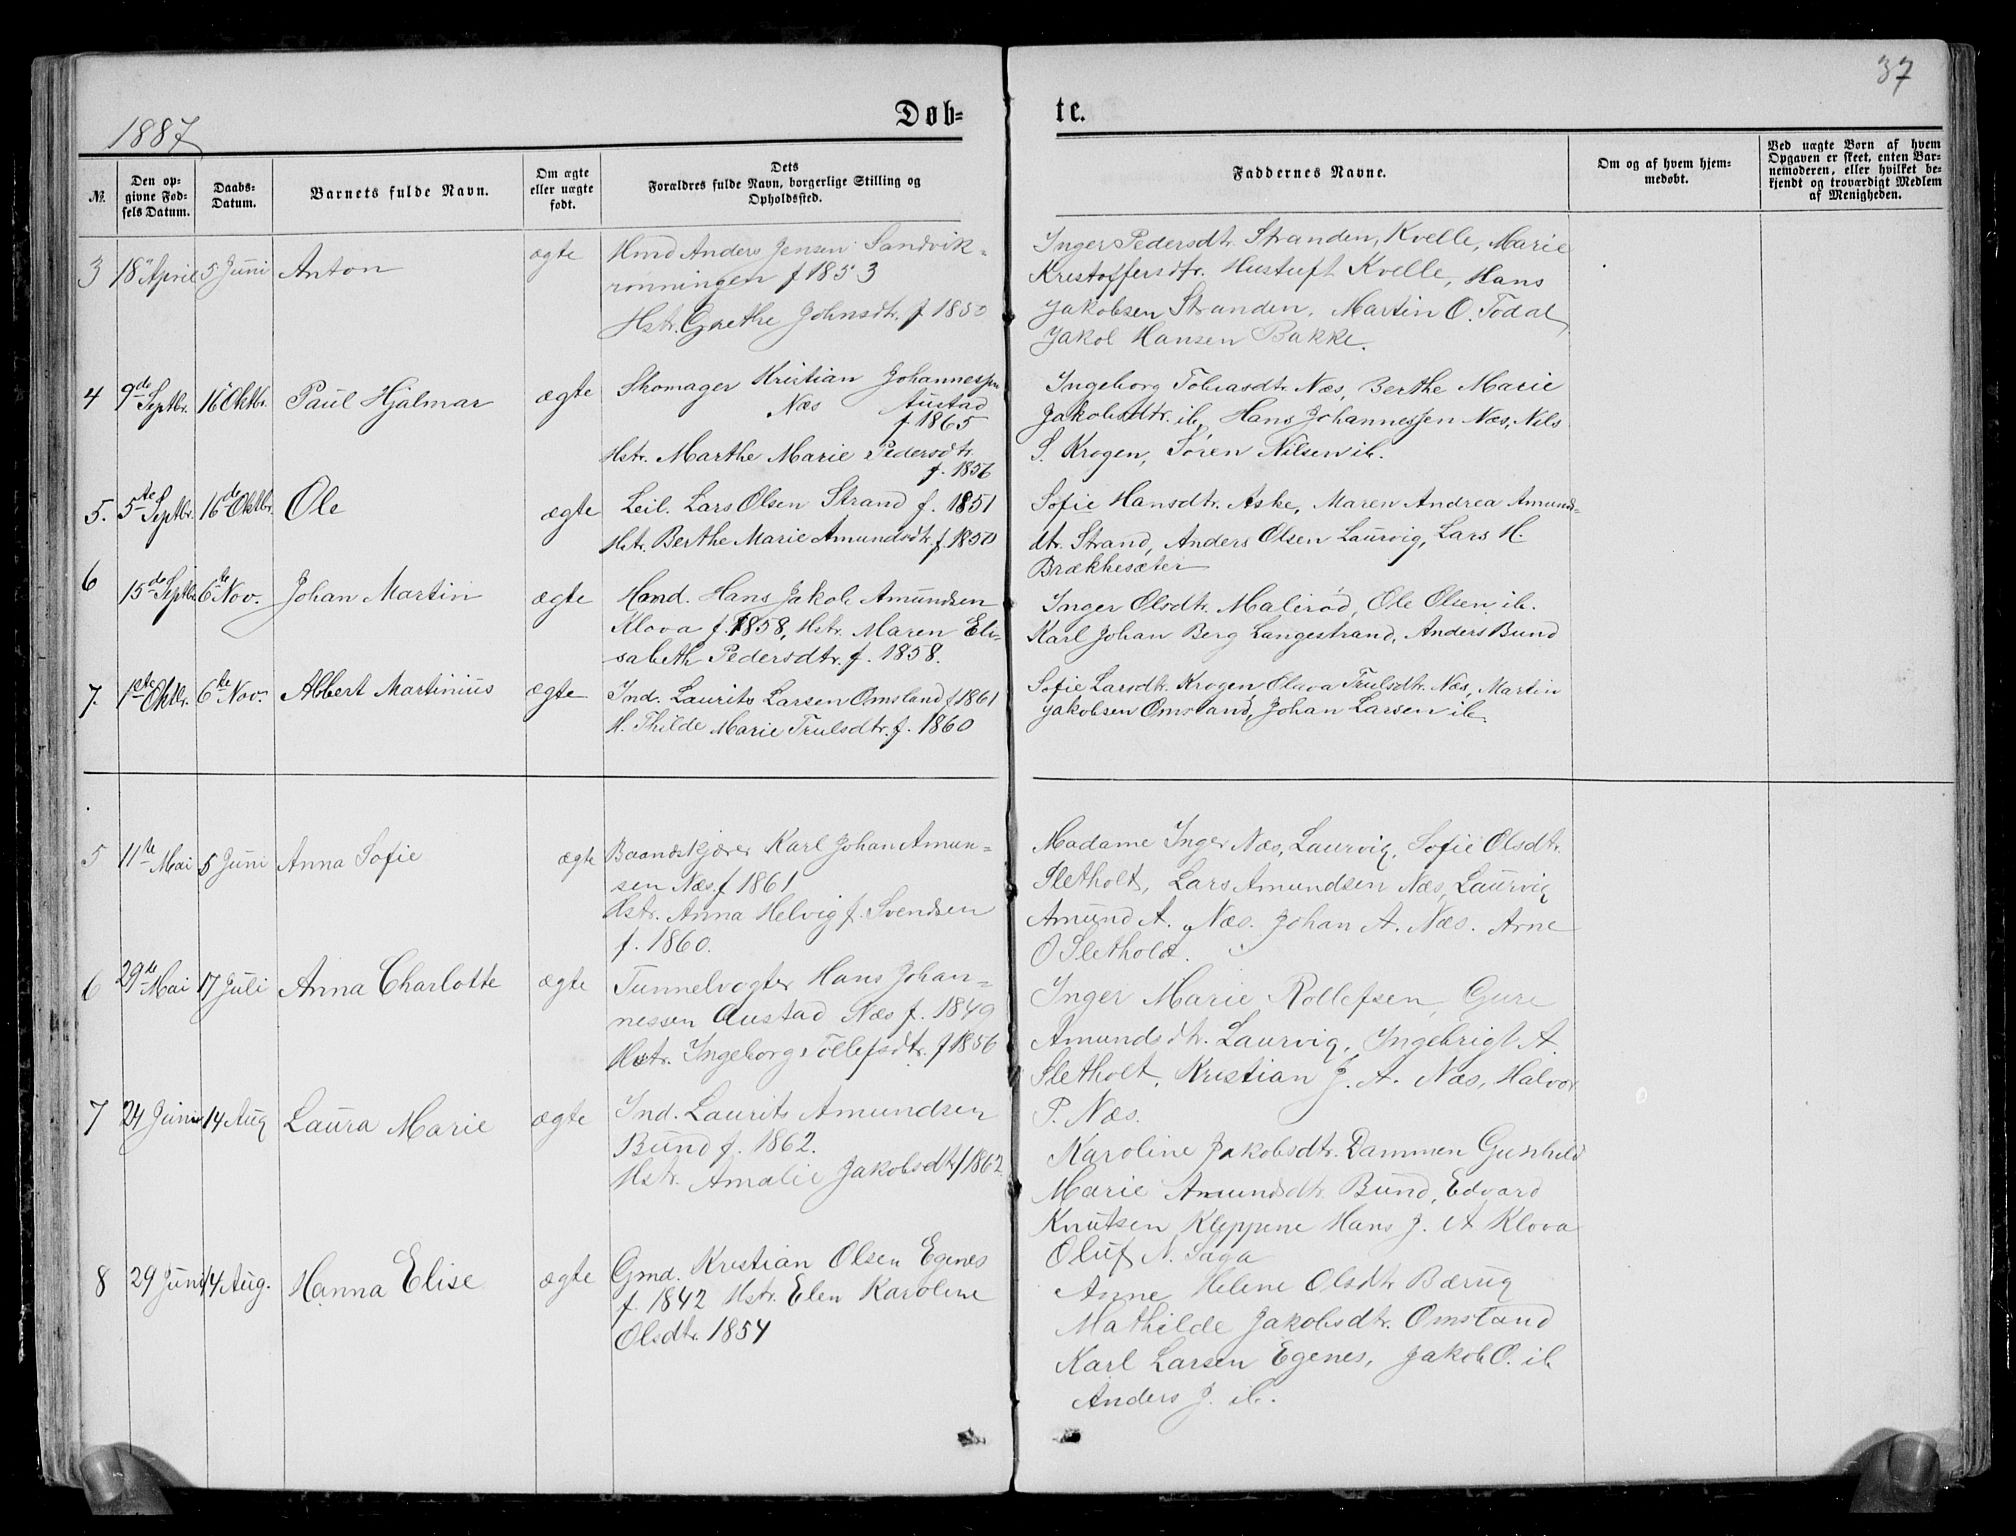 37
1887
Døb-
te.
№.
Den op-
givne Fød-
sels Datum.
Daabs-
Datum.
Barnets fulde Navn.
Om ægte
eller uægte
født.
Dets
Forældres fulde Navn, borgerlige Stilling og
Opholdssted.
Faddernes Navne.
Om og af hvem hjem-
medøbt.
Ved uægte Børn af hvem
Opgaven er skeet, enten Bar-
nemoderen, eller hvilket be-
kjendt og troværdigt Medlem
af Menigheden.
3 18 April 5 Juni Anton ægte
Hmd Anders Jensen Sandvik-
rønningen f 1853
Hstr. Grethe Johnsdtr. f 1850
Inger Pedersdtr. Stranden, Kvelle, Marie
Kristoffersdtr. Hustuft Kvelle, Hans
Jakobsen Stranden, Martin O. Todal,
Jakob Hansen Bakke.
4 9de Septbr. 16 Oktbr. Paul Hjalmar ægte
Skomager Kristian Johannessen
Næs Austad
f. 1865
Hstr. Marthe Marie Pedersdtr.
f. 1856
Ingeborg Tobiasdtr. Næs, Berthe Marie
Jakobsdtr. ib, Hans Johannessen Næs, Nils
S. Krogen, Søren Nilsen ib.
5. 5te Septbr. 16de Oktbr. Ole ægte
Leil. Lars Olsen Strand f. 1851
Hstr. Berthe Marie Amundsdtr. f 1850
Sofie Hansdtr. Aske, Maren Andrea Amunds-
dtr. Strand, Anders Olsen Laurvig, Lars H.
Brækkesæter
6 15de Septbr. 6te Nov. Johan Martin ægte
Hand. Hans Jakob Amundsen
Klova f. 1858, Hstr. Maren Eli-
sabeth Pedersdtr. f. 1858.
Inger Olsdtr. Malerød, Ole Olsen ib.
Karl Johan Berg Langestrand, Anders Bund
7. 1ste Oktbr. 6te Nov. Albert Martinius ægte
Ind. Laurits Larsen Omsland f 1861
H. Thilde Marie Trulsdtr. f. 1860
Sofie Larsdtr. Krogen Olava Trulsdtr. Næs, Martin
Jakobsen Omsland, Johan Larsen ib.
5 11te Mai 5 Juni Anna Sofie ægte
Baandskjærer Karl Johan Amun-
sen Næs f 1861
Hstr. Anna Helvig f. Svendsen
f. 1860.
Madame Inger Næs, Laurvig, Sofie Olsdtr.
Sletholt, Lars Amundsen Næs, Laurvig
Amund A. Næs. Johan A. Næs. Arne
O Sletholt.
6 29de Mai 17 Juli Anna Charlotte ægte
Tunnelvogter Hans Johan-
nessen Austad Næs f. 1849
Hstr. Ingeborg Tollefsdtr. f 1856
Inger Marie Rollefsen, Gure
Amundsdtr. Laurvig, Ingebrigt A.
Sletholt, Kristian J. A. Næs, Halvor
P. Næs.
7 24 Juni 14 Aug Laura Marie ægte
Ind. Laurits Amundsen
Bund f. 1862.
Hstr. Amalie Jakobsdtr f 1862
Karoline Jakobsdtr. Dammen Gunhild
Marie Amundsdtr. Bund, Edvard
Knutsen Kleppene Hans J. A Klova
Oluf N. Saga
8 29 Juni 14 Aug. Hanna Elise ægte
Gmd. Kristian Olsen Egenes
f. 1842 Hstr. Elen Karoline
Olsdtr. 1854
Anne Helene Olsdtr. Bærug
Mathilde Jakobsdtr. Omsland
Karl Larsen Egenes, Jakob O. ib
Anders J. ib.